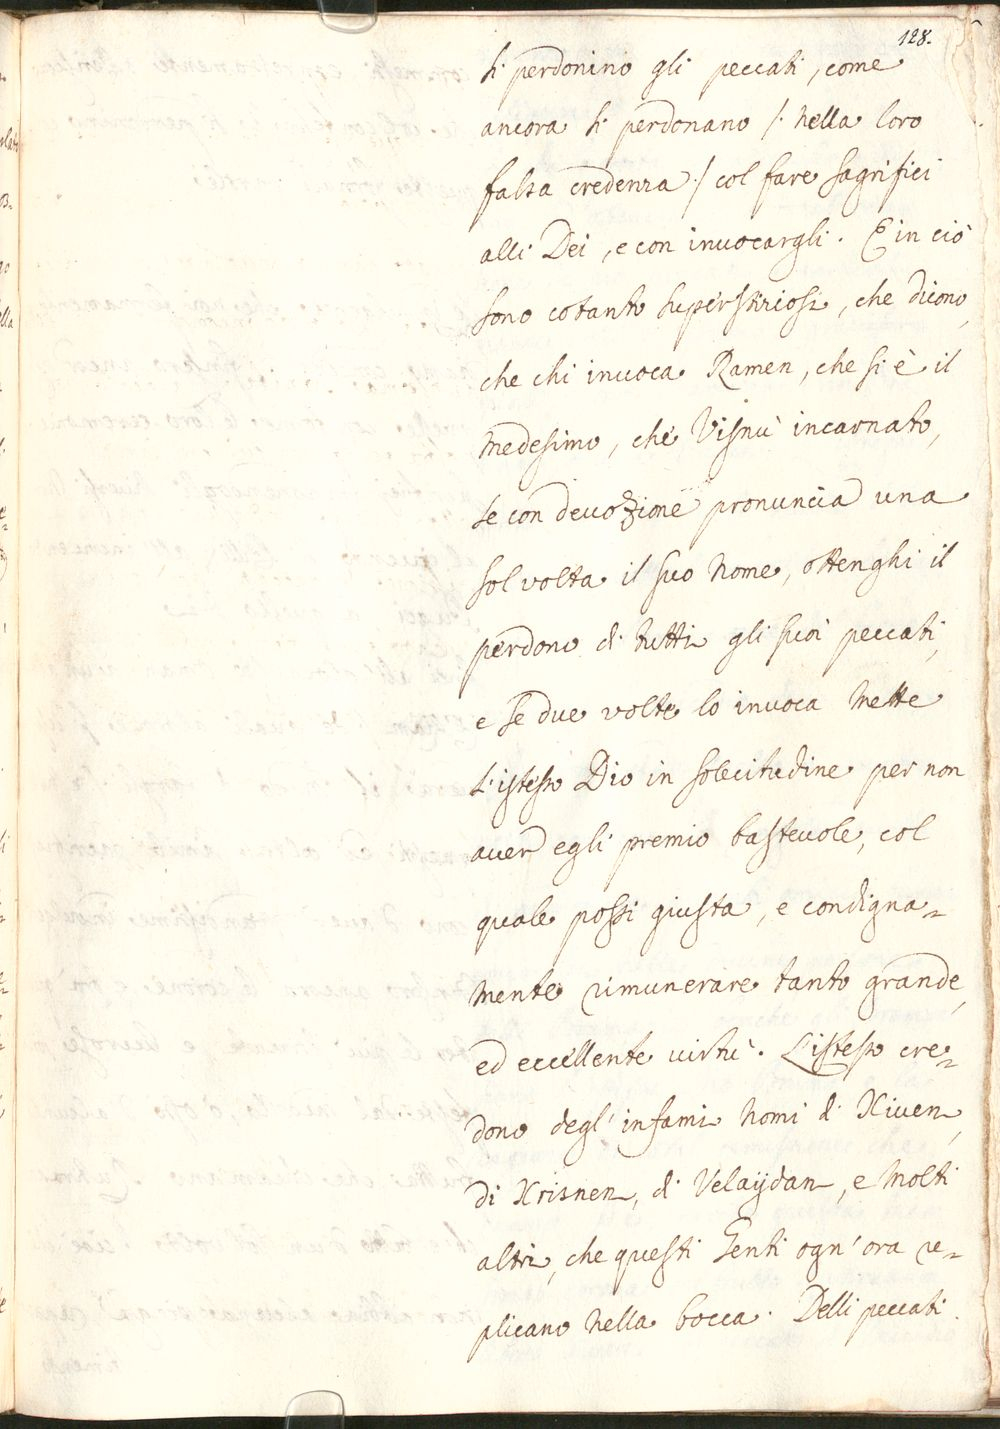 128.
si perdonino gli peccati, come
ancora si perdonano /: nella loro
falsa credenza :/ col fare sagrifici
alli Dei, e con invocargli. E in ciò
sono cotanto superstiziosi, che dicono,
che chi invoca Ramen, che si è il
medesimo, che Visnù incarnato,
se con devozione pronuncia una
sol volta il suo nome, ottenghi il
perdono di tutti gli suoi peccati,
e se due volte lo invoca mette
l'istesso Dio in solecitudine per non
aver egli premio bastevole, col
quale possi giusta, e condigna-
mente rimunerare tanto grande,
ed eccellente virtù. L'istesso cre-
dono degl'infami nomi di Xiven,
di Xrisnen, di Velaÿdan, e molti
altri, che questi Genti ogn'ora re-
plicano nella bocca. Delli peccati